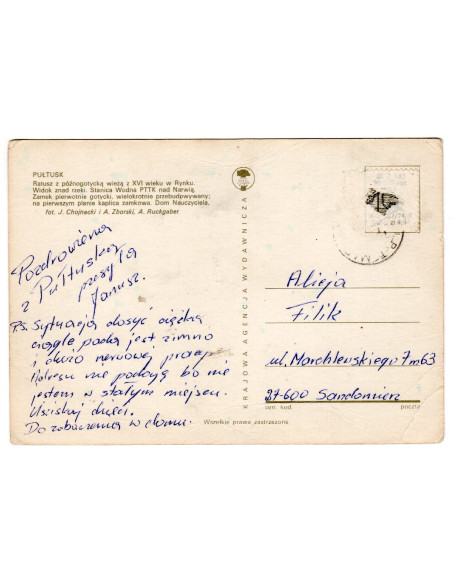 PUŁTUSK
Ratusz z późnogotycką wieżą z XVI wieku w Rynku.
Widok znad rzeki. Stanica Wodna PTTK nad Narwią.
Zamek pierwotnie gotycki, wielokrotnie przebudowywany;
na pierwszym planie kaplica zamkowa. Dom Nauczyciela.
fot. J. Chojnecki i A. Zborski, A. Ruckgaber
Pozdrowienia
z Pułtuska
przesyła
Janusz.
P.S. Sytuacja dosyć ciężka
ciągle pada jest zimno
i dużo nerwowej pracy
Adresu nie podaję bo nie
jestem w stałym miejscu.
Uściskaj dzieci.
Do zobaczenia w domu.
KRAJOWA AGENCJA WYDAWNICZA
Alicja
Filik
ul. Marchlewskiego 7 m 63
27-600 Sandomierz
kod
poczta
Wszelkie prawa zastrzeżone